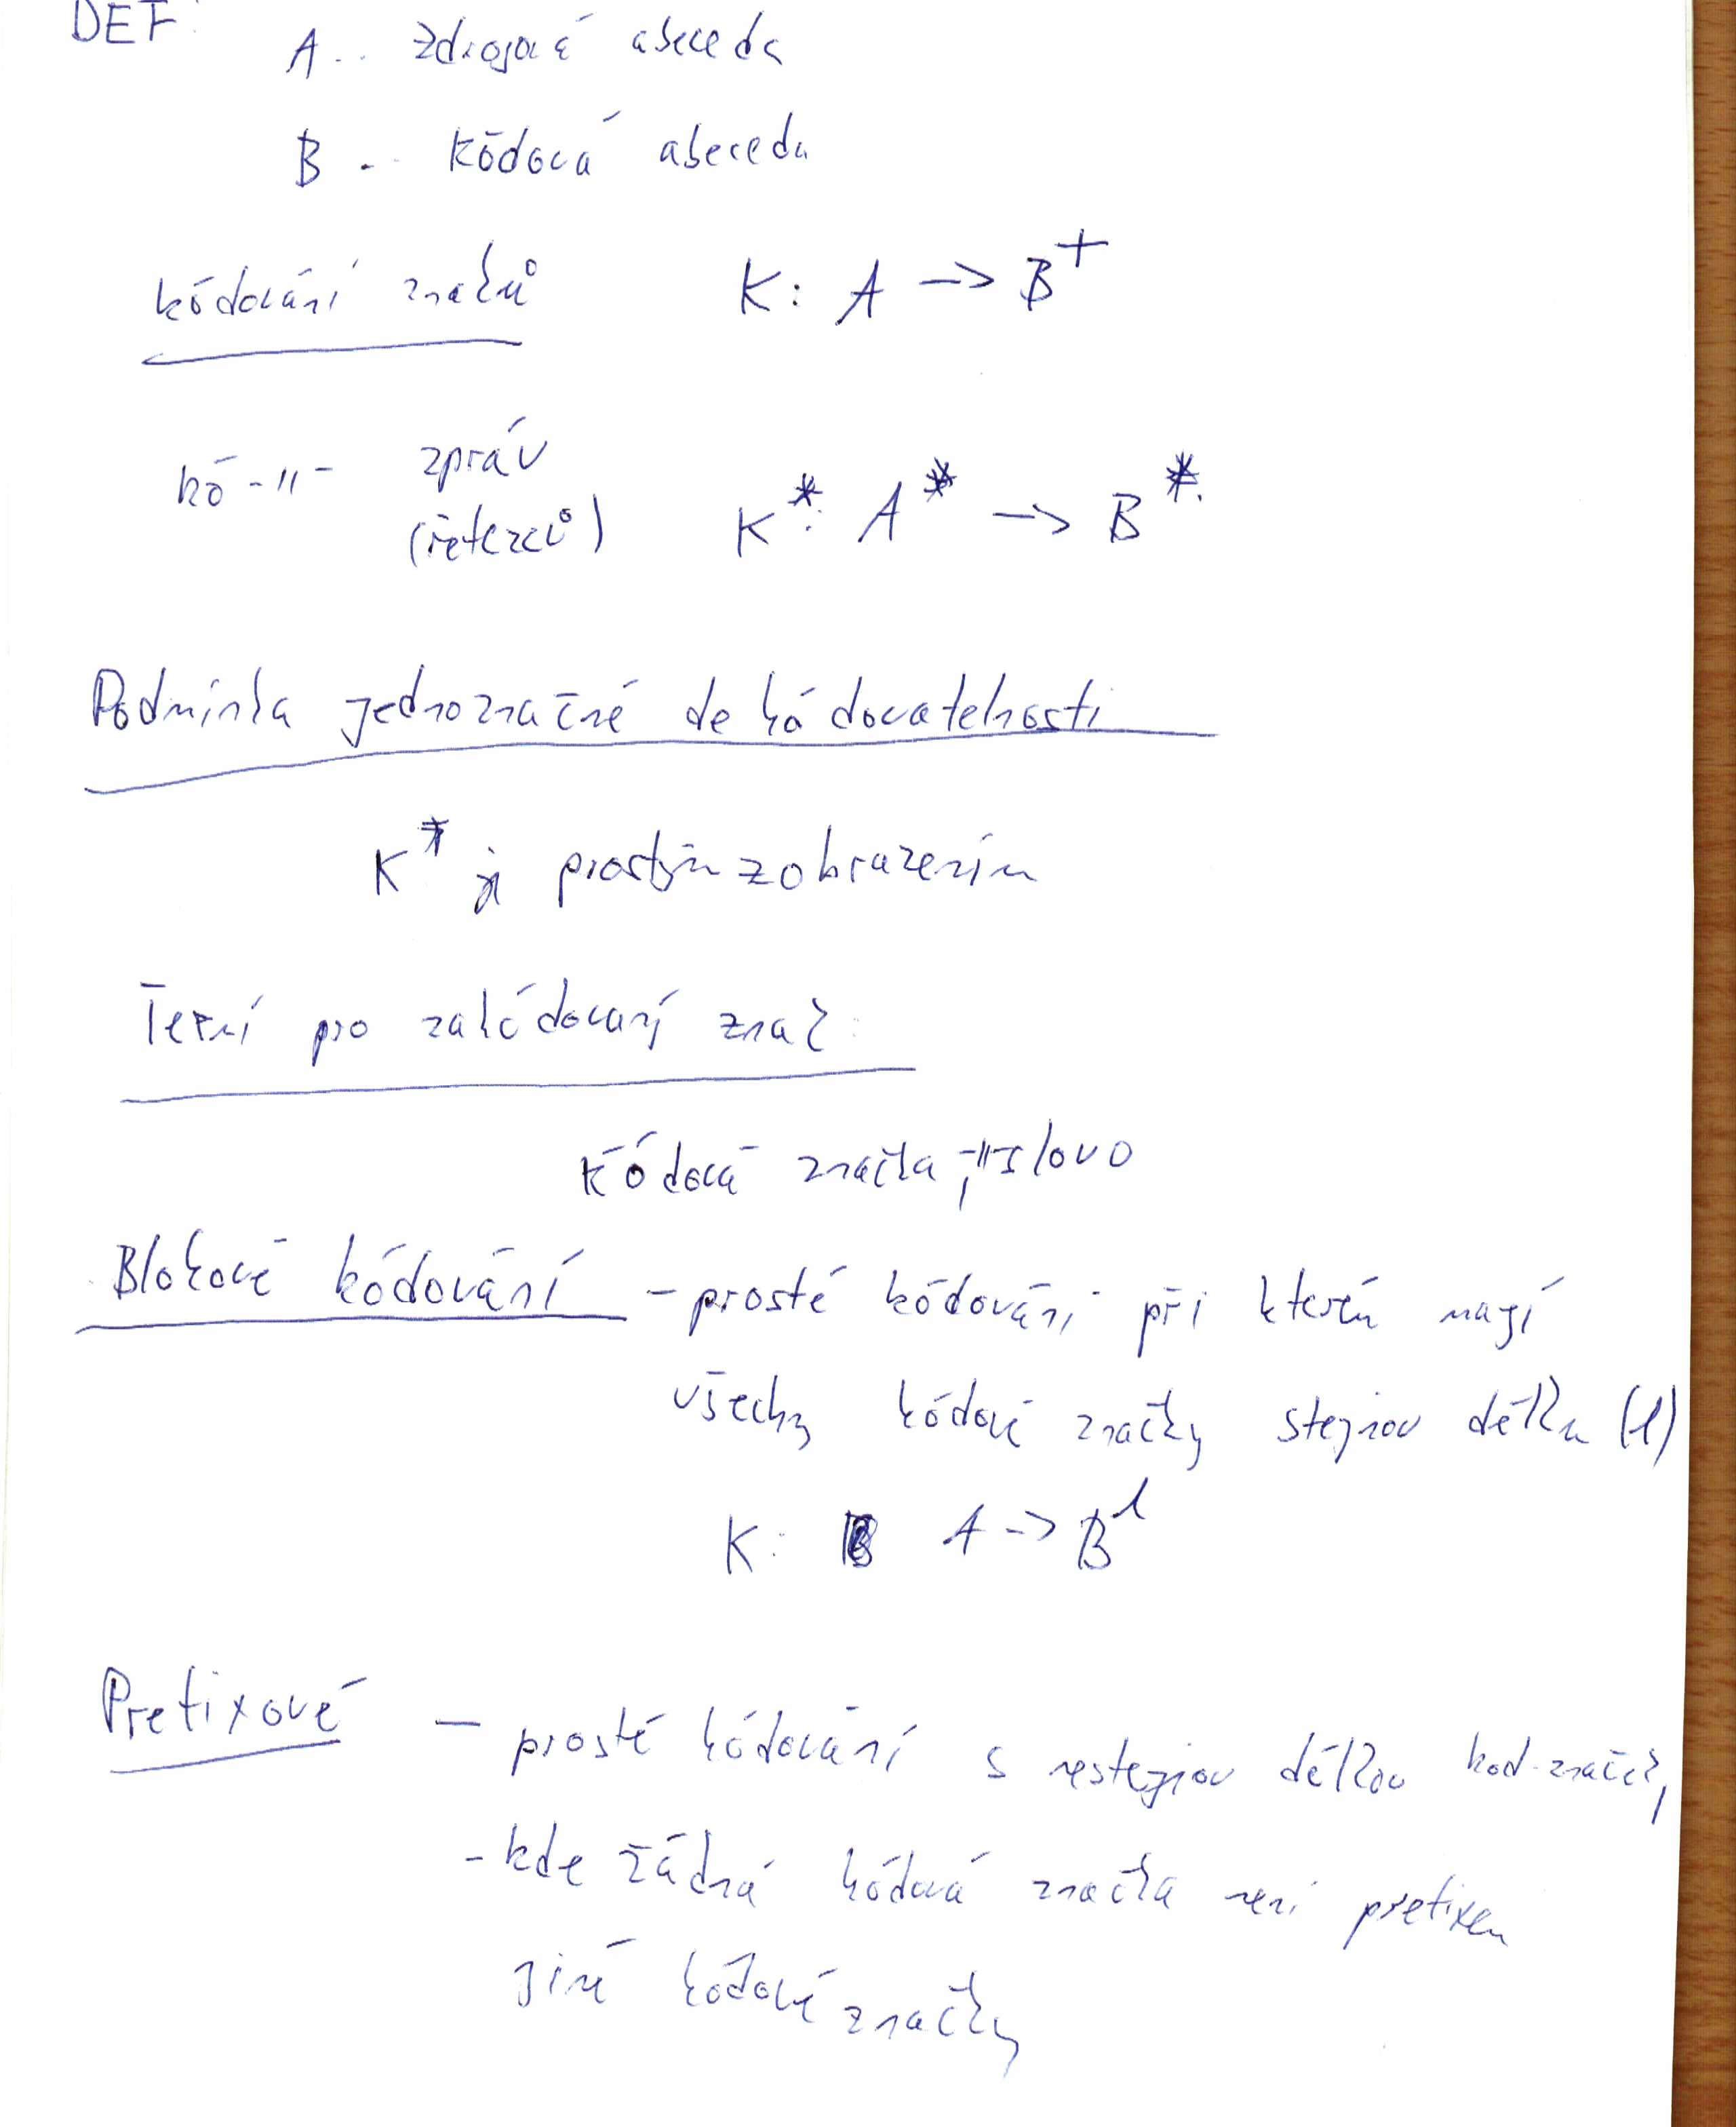 DEF:
A .. zdrojová abeceda
B .. kódová abeceda
kódování znaků K: A -> B^+
kó -||- zpráv
(řetezců) K^*: A^* -> B^*
Podmínka jednoznačné dekódovatelnosti
K^* je prostým zobrazením
pro zakódovaný znak:
Kódová značka, -||- slovo
Blokové kódování - prosté kódování při kterém mají
všechy kódové značky stejnou délku (l)
K: A -> B^l
Prefixové - prosté kódování s nestejnou délkou kod. značek,
- kde žádná kódová značka není prefixem
jiné kódové značky